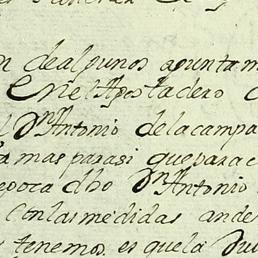 n de algunos apuntam
En el Apostadero
Dn Antonio de la campa
mas para si que para c
epoca dho Dn Antonio
Con las medidas ande
tenemos es que la